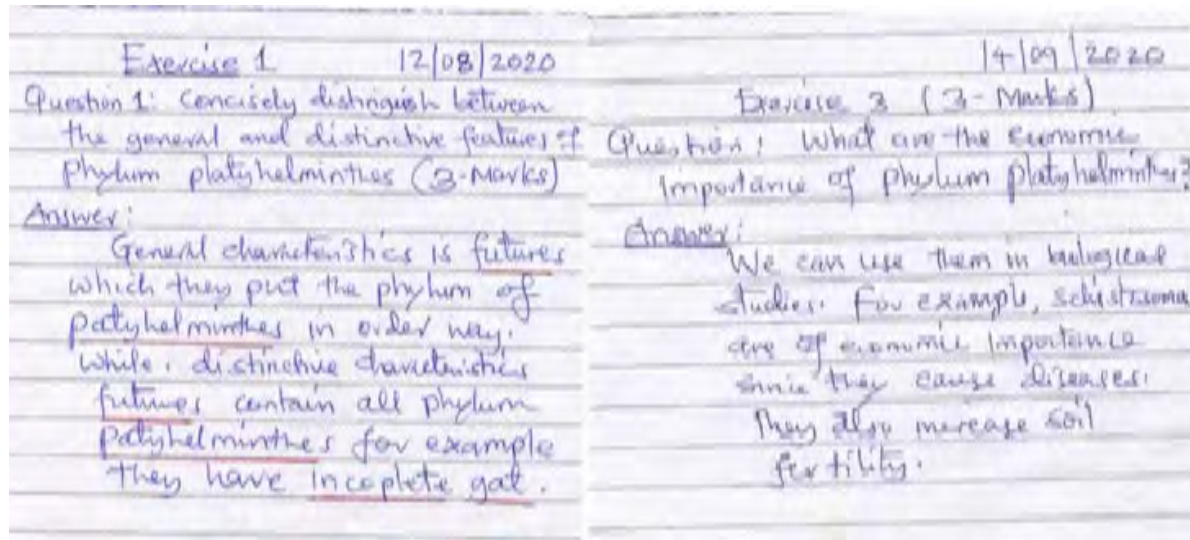 Exercise 1 12/08/2020
Question 1: Concisely distinguish between
the general and distinctive features of
Phylum platyhelminthes (3-Marks)
Answer:
General charactoristics is futures
which they put the phylum of
patyhelminthes in order way.
while. distinctive charicteristics
futures contain all phylum
patyhelminthes for example
they have incoplete gat.
14/09/2020
Exercise 3 (3-Marks)
Question: What are the economic
importance of phylum platyhelminthes?
Answer:
We can use them in biological
studies. For example, schistosoma
are of economic importance
since they cause diseases.
They also increase soil
fertility.